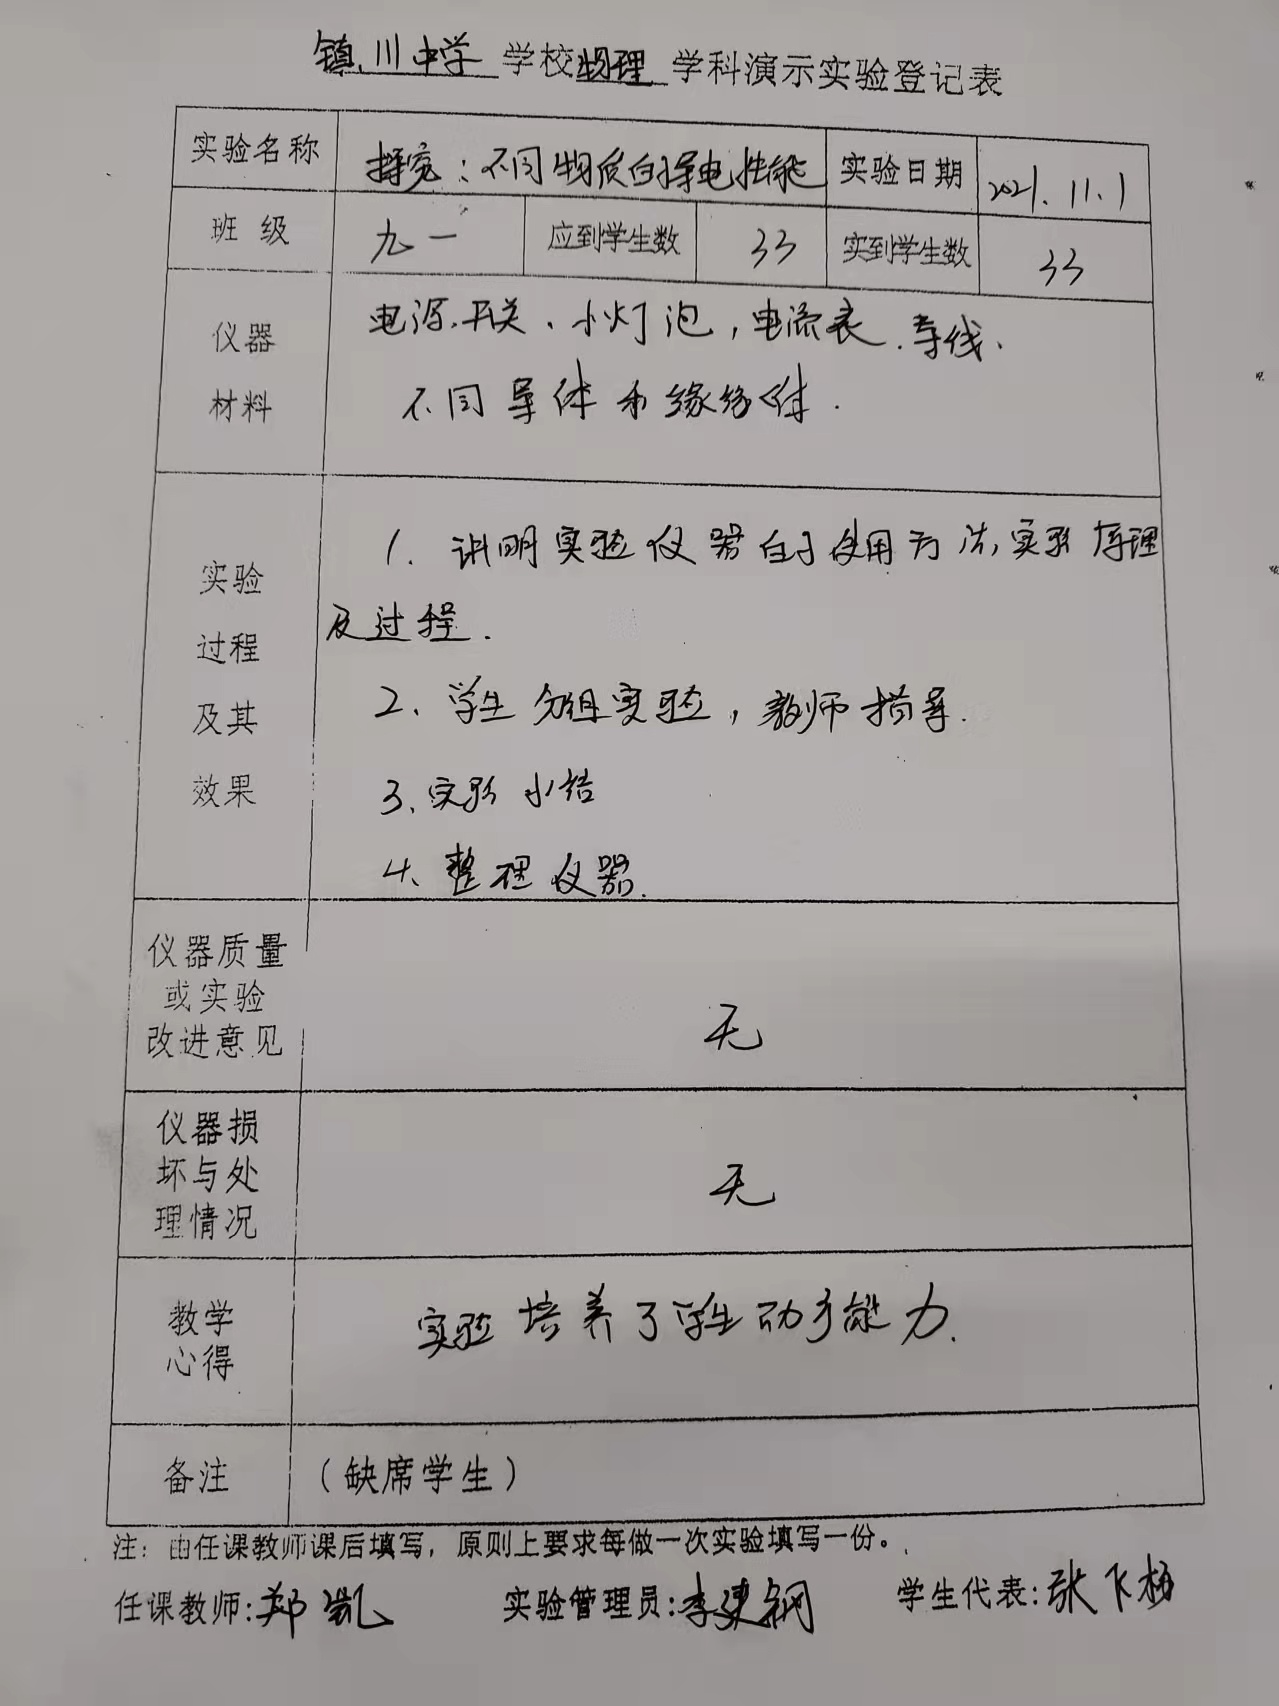 镇川中学 学校物理 学科演示实验登记表
实验名称 探究：不同物质的导电性能 实验日期 2021.11.1
班 级 九一 应到学生数 33 实到学生数 33
仪器 电源、开关、小灯泡，电流表、导线、
材料 不同导体和缘缘体．
1. 说明实验仪器的使用方法，实验原理
实验
及过程．
过程
2、学生分组实验，教师指导．
及其
3、实验小结
效果
4、整理仪器．
仪器质量
或实验
改进意见 无
仪器损
坏与处 无
理情况
教学 实验培养了学生动手能力．
心得
备注 （缺席学生）
注：由任课教师课后填写，原则上要求每做一次实验填写一份。
任课教师：郑凯 实验管理员：李建钢 学生代表：张飞杨